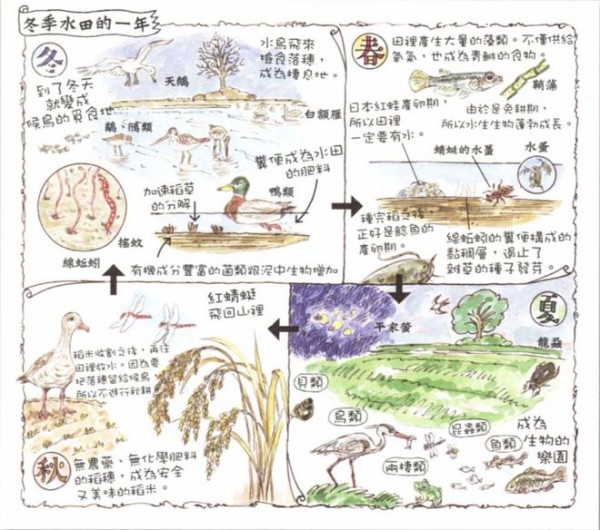 冬季水田的一年
冬
到了冬天
就變成
候鳥的覓食地
天鵝
水鳥飛來
搶食落穗，
成為棲息地。
白額雁
鷸、鴴類
糞便成為水田
的肥料
鴨類
加速稻草
的分解
搖蚊
線蚯蚓
有機成分豐富的菌類跟泥中生物增加
春
田裡產生大量的藻類。不僅供給
氧氣，也成為青鱂的食物。
鞘藻
日本紅蛙產卵期，
所以田裡
一定要有水。
由於是免耕期，
所以水生生物蓬勃成長。
蜻蜓的水蠆
水蚤
種完稻之後
正好是鯰魚的
產卵期。
線蚯蚓的糞便構成的
黏稠層，遏止了
雜草的種子發芽。
夏
平家螢
龍蝨
貝類
鳥類
昆蟲類
魚類
兩棲類
成為
生物的
樂園
紅蜻蜓
飛回山裡
稻米收割之後，再注
田裡放水。因為要
把落穗留給候鳥
所以不進行秋耕
秋
無農藥、無化學肥料
的稻穗，成為安全
又美味的稻米。